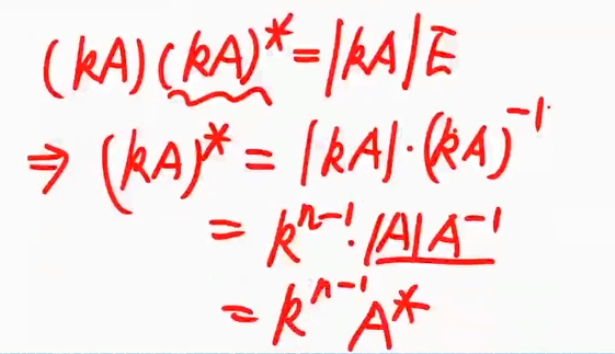 (kA)(kA)* = |kA|E
⇒ (kA)* = |kA|·(kA)⁻¹
= kⁿ⁻¹·|A|A⁻¹
= kⁿ⁻¹A*